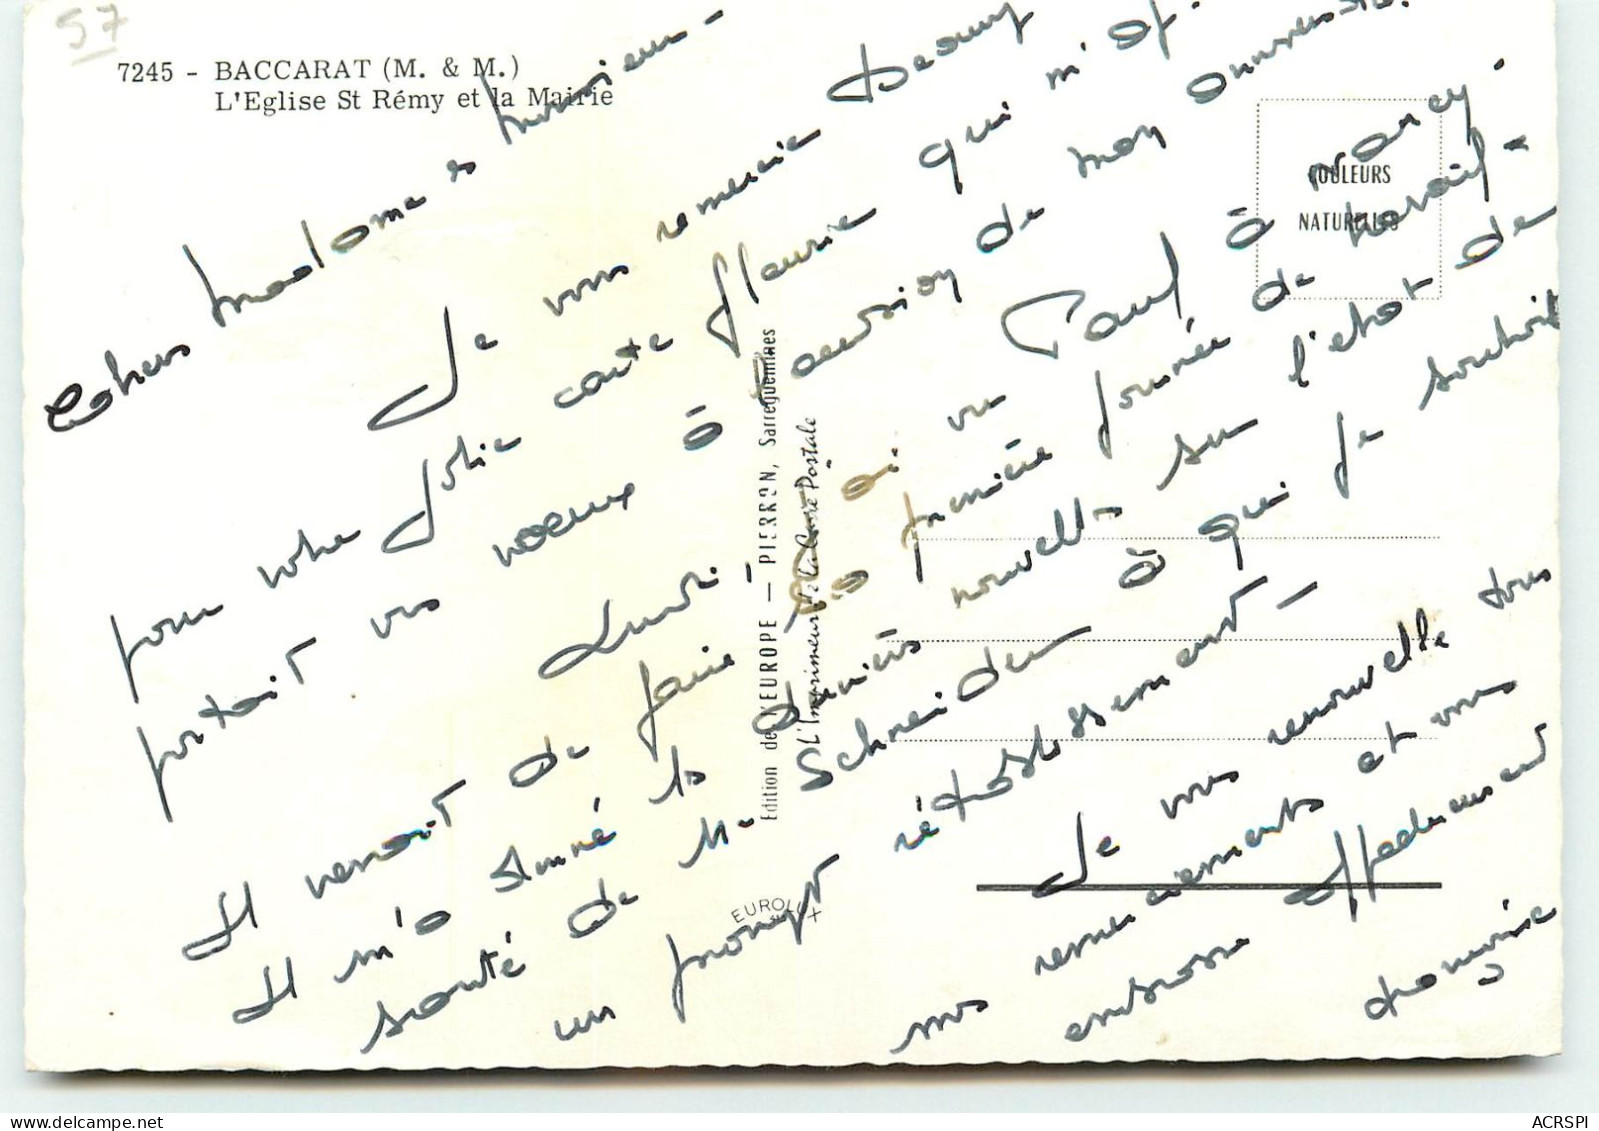 57
7245 - BACCARAT (M. & M.)
L'Eglise St Rémy et la Mairie
COULEURS
NATURELLES
Edition de l'EUROPE — PIERRON, Sarreguemines
L'Imprimeur de la Carte Postale
EUROLUX
Chers Madame et Monsieur -
Je vous remercie beaucoup
pour votre jolie carte fleurie qui m'ap-
portait vos voeux à l'occasion de mon anniversaire.
Lundi j'ai vu Paul à Nancy.
Il venait de faire sa première journée de travail -
Il m'a donné les dernières nouvelles sur l'état de
santé de Me Schneider à qui je souhaite
un prompt rétablissement -
Je vous renouvelle tous
mes remerciements et vous
embrasse affectueusement
Françoise
ACRSPI